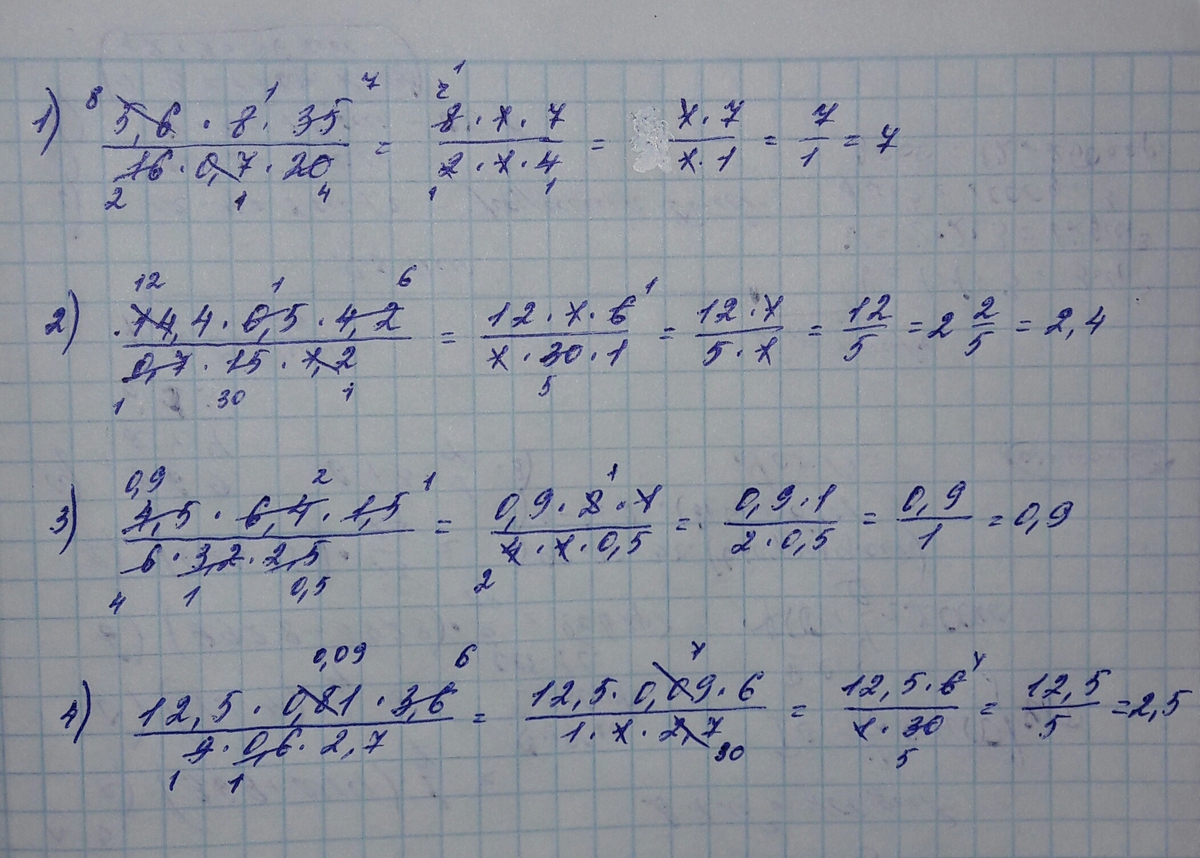 1) 5,6 · 8 · 35 / 16 · 0,7 · 20 = 8 · 1 · 7 / 2 · 1 · 4 = 1 · 7 / 1 · 1 = 7 / 1 = 7
2) 14,4 · 0,5 · 4,2 / 0,7 · 15 · 1,2 = 12 · 1 · 6 / 1 · 30 · 1 = 12 · 1 / 5 · 1 = 12 / 5 = 2 2/5 = 2,4
3) 4,5 · 6,4 · 1,5 / 6 · 3,2 · 2,5 = 0,9 · 2 · 1 / 4 · 1 · 0,5 = 0,9 · 1 / 2 · 0,5 = 0,9 / 1 = 0,9
4) 12,5 · 0,81 · 3,6 / 9 · 0,6 · 2,7 = 12,5 · 0,09 · 6 / 1 · 1 · 2,7 = 12,5 · 6 / 1 · 30 = 12,5 / 5 = 2,5